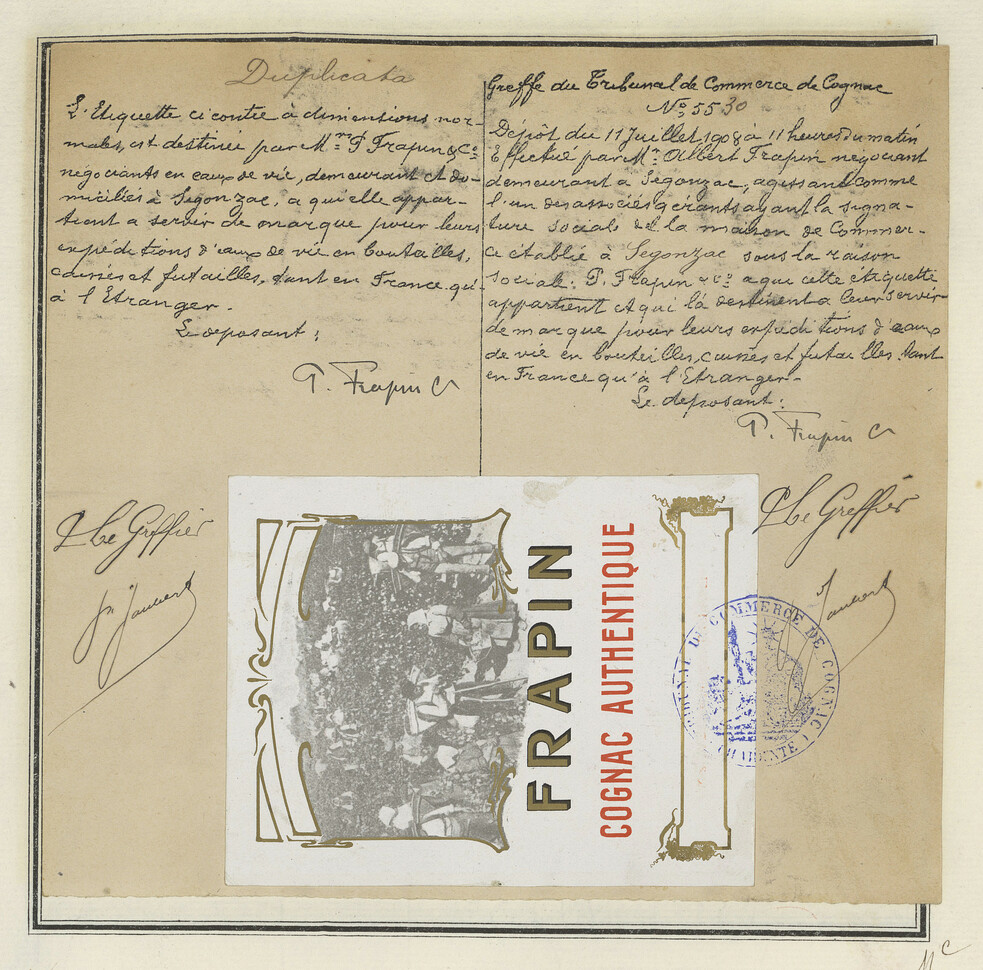 Duplicata
L'Etiquette ci contre à dimensions nor-
males, est destinée par Mrs P. Frapin & Co
négociants en eaux de vie, demeurant et do-
miciliés à Segonzac, a qui elle appar-
tient a servir de marque pour leurs
expéditions d'eaux de vie en bouteilles,
caisses et futailles, tant en France qu'
à l'Etranger.
Le deposant:
P. Frapin Co
P le Greffier
Greffe du Tribunal de Commerce de Cognac
No 5530
Dépôt du 11 Juillet 1908 à 11 heures du matin
Effectué par Mr Albert Frapin négociant
demeurant a Segonzac, agissant comme
l'un des associés gérants ayant la signa-
ture social de la maison de Commer-
ce établie à Segonzac sous la raison
sociale: P. Frapin & Co a qui cette étiquette
appartient et qui la destinent a leur servir
de marque pour leurs expéditions d'eaux
de vie en bouteilles, caisses et futailles tant
en France qu'à l'Etranger-
Le deposant:
P. Frapin Co
P le Greffier
FRAPIN
COGNAC AUTHENTIQUE
TRIBUNAL DE COMMERCE DE COGNAC
CHARENTE